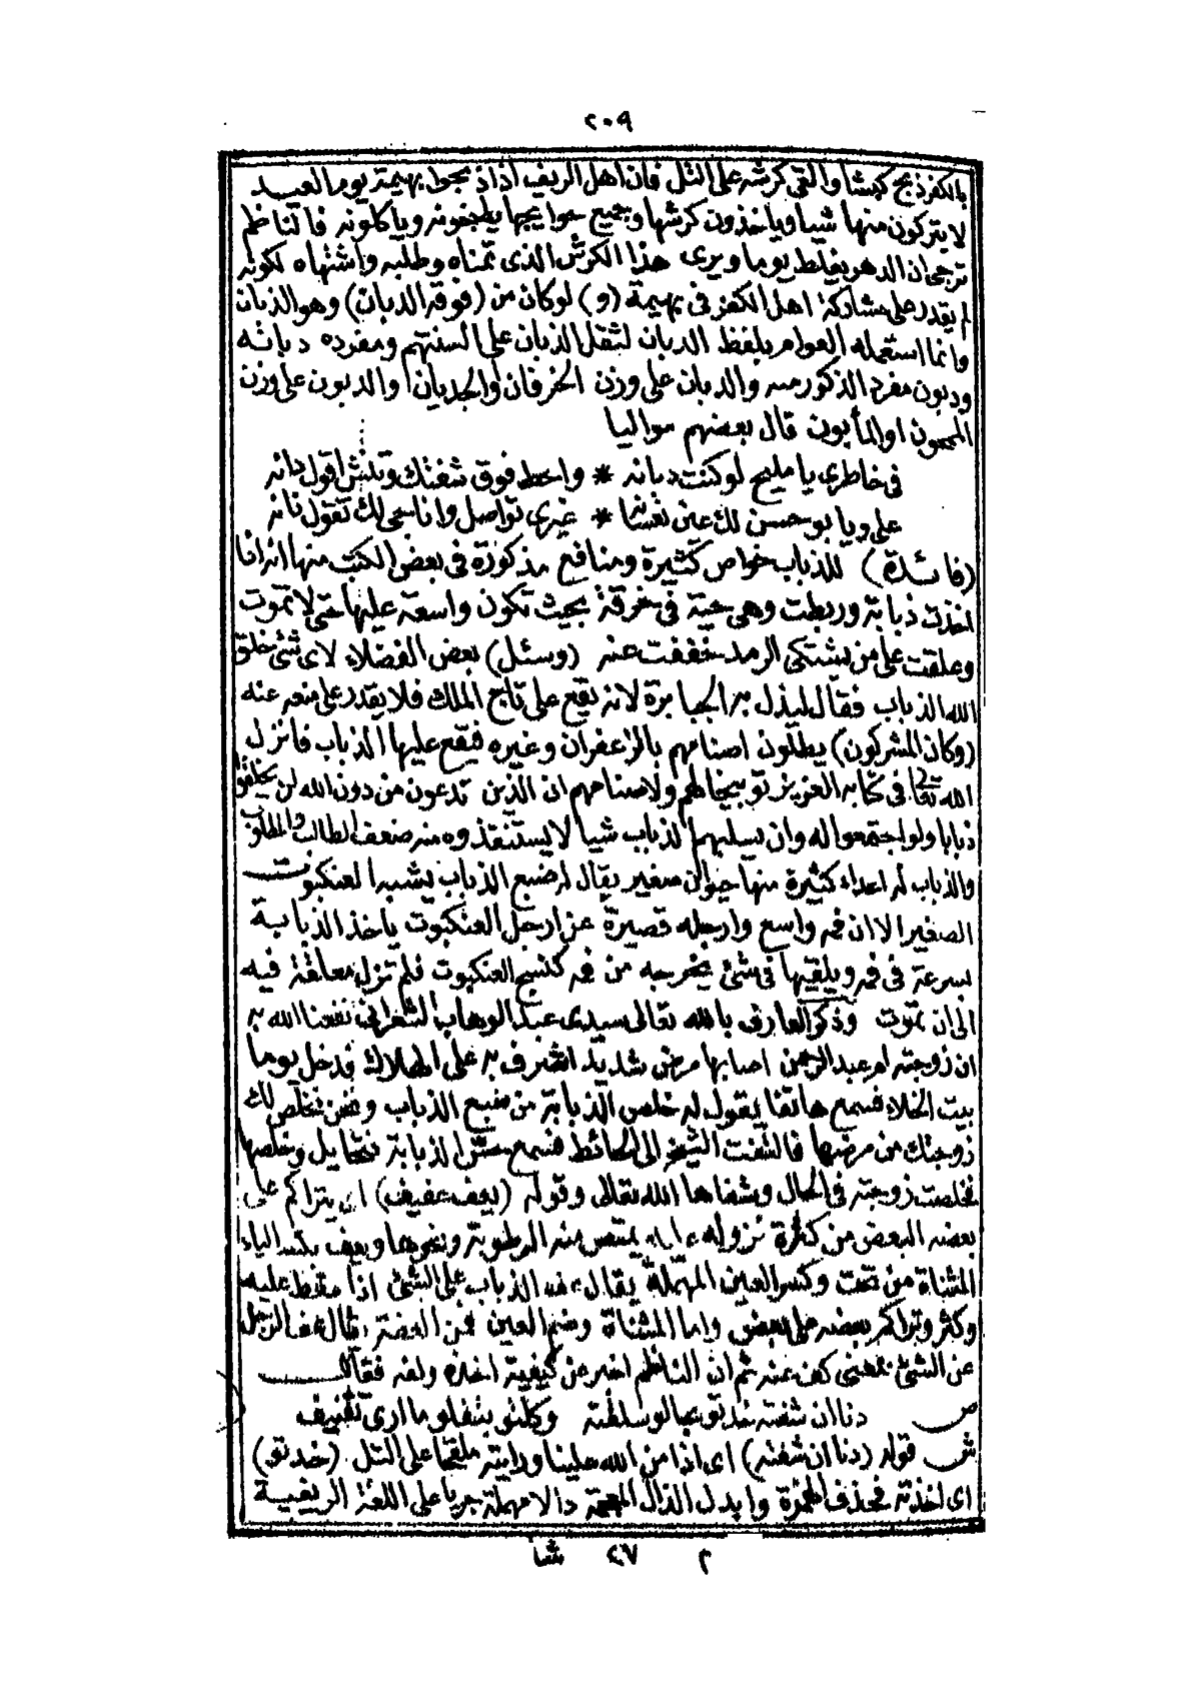 ٢٠٩
بالكفر ذبح كبشا والقى كرشه على التل فان اهل الريف اذا ذبحوا بهيمة يوم العيد
لا يتركون منها شيا وياخذون كرشها وجميع حوايجها يطبخونه وياكلونه فالناظم
ترجى ان الدهر يغلط يوما ويرى هذا الكرش الذى تمناه وطلبه واشتهاه لكونه
لم يقدر على مشاركة اهل الكفر فى بهيمة (و) لو كان من (فوقه الدبان) وهو الذبان
وانما استعمله العوام بلفظ الدبان لثقل الذبان على السنتهم ومفرده دبانه
ودبون مفرد الذكور منه والدبان على وزن الخرفان والجديان او الدبون على وزن
المجنون او المأبون قال بعضهم مواليا
فى خاطرى يا مليح لو كنت دبانه * واحط فوق شفتك وتنش اقول دانه
على ويا بو حسن لك عين نعسانه * غيرى تواصل وانا سحى لك تقول نانه
(فائدة) للذباب خواص كثيرة ومنافع مذكورة فى بعض الكتب منها انه اذا
اخذت ذبابة وربطت وهى حية فى خرقة بحيث تكون واسعة عليها حتى لا تموت
وعلقت على من يشتكى الرمد خففت عنه (وسئل) بعض الفضلاء لاى شئ خلق
الله الذباب فقال ليذل به الجبابرة لانه يقع على تاج الملك فلا يقدر على منعه عنه
(وكان المشركون) يطلون اصنامهم بالزعفران وغيره فيقع عليها الذباب فانزل
الله تعالى فى كتابه العزيز توبيخا لهم ولاصنامهم ان الذين تدعون من دون الله لن يخلقوا
ذبابا ولو اجتمعوا له وان يسلبهم الذباب شيا لا يستنقذوه منه ضعف الطالب والمطلوب
والذباب له اعداء كثيرة منها حيوان صغير يقال له ضبع الذباب يشبه العنكبوت
الصغير الا ان فمه واسع وارجله قصيرة عن ارجل العنكبوت ياخذ الذبابة
بسرعة فى فمه ويلقيها فى شئ يخرجه من فمه كنسج العنكبوت فلم تزل معلقة فيه
الى ان تموت وذكر العارف بالله تعالى سيدى عبد الوهاب الشعرانى نفعنا الله به
ان زوجته ام عبد الرحمن اصابها مرض شديد اشرف به على الهلاك فدخل يوما
بيت الخلاء فسمع هاتفا يقول له خلص الذبابة من ضبع الذباب ونحن نخلص لك
زوجتك من مرضها فالتفت الشيخ الى الحائط فسمع حس الذبابة فتحايل وخلصها
فخلصت زوجته فى الحال وشفاها الله تعالى وقوله (يعف عفيف) اى يتراكم على
بعضه البعض من كثرة نزوله عليه يمتص منه الرطوبة ونحوها ويعف بكسر الياء
المثناة من تحت وكسر العين المهملة يقال عف الذباب على الشئ اذا سقط عليه
وكثر وتراكم بعضه على بعض واما المثناة وضم العين فمن العفة يقال عف الرجل
عن الشئ بمعنى كف عنه ثم ان الناظم اخبر عن كيفية اخذه ولفه فقال
ص دنا ان شفته خدتو بحالو سلقته وكلتو بتفلو ما ارى تقنيف
ش قوله (دنا ان شفته) اى اذا من الله علينا ورايته ملقحا على التل (خدتو)
اى اخذته فحذف الهمزة وابدل الذال المعجمة دالا مهملة جريا على اللغة الريفية
٢ ٢٧ شا